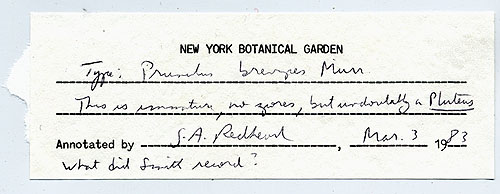 NEW YORK BOTANICAL GARDEN
Type: Prunulus brevipes Murr.
This is immature, no spores, but undoubtedly a Pluteus
Annotated by S.A. Redhead, Mar. 3 1983
What did Smith record?